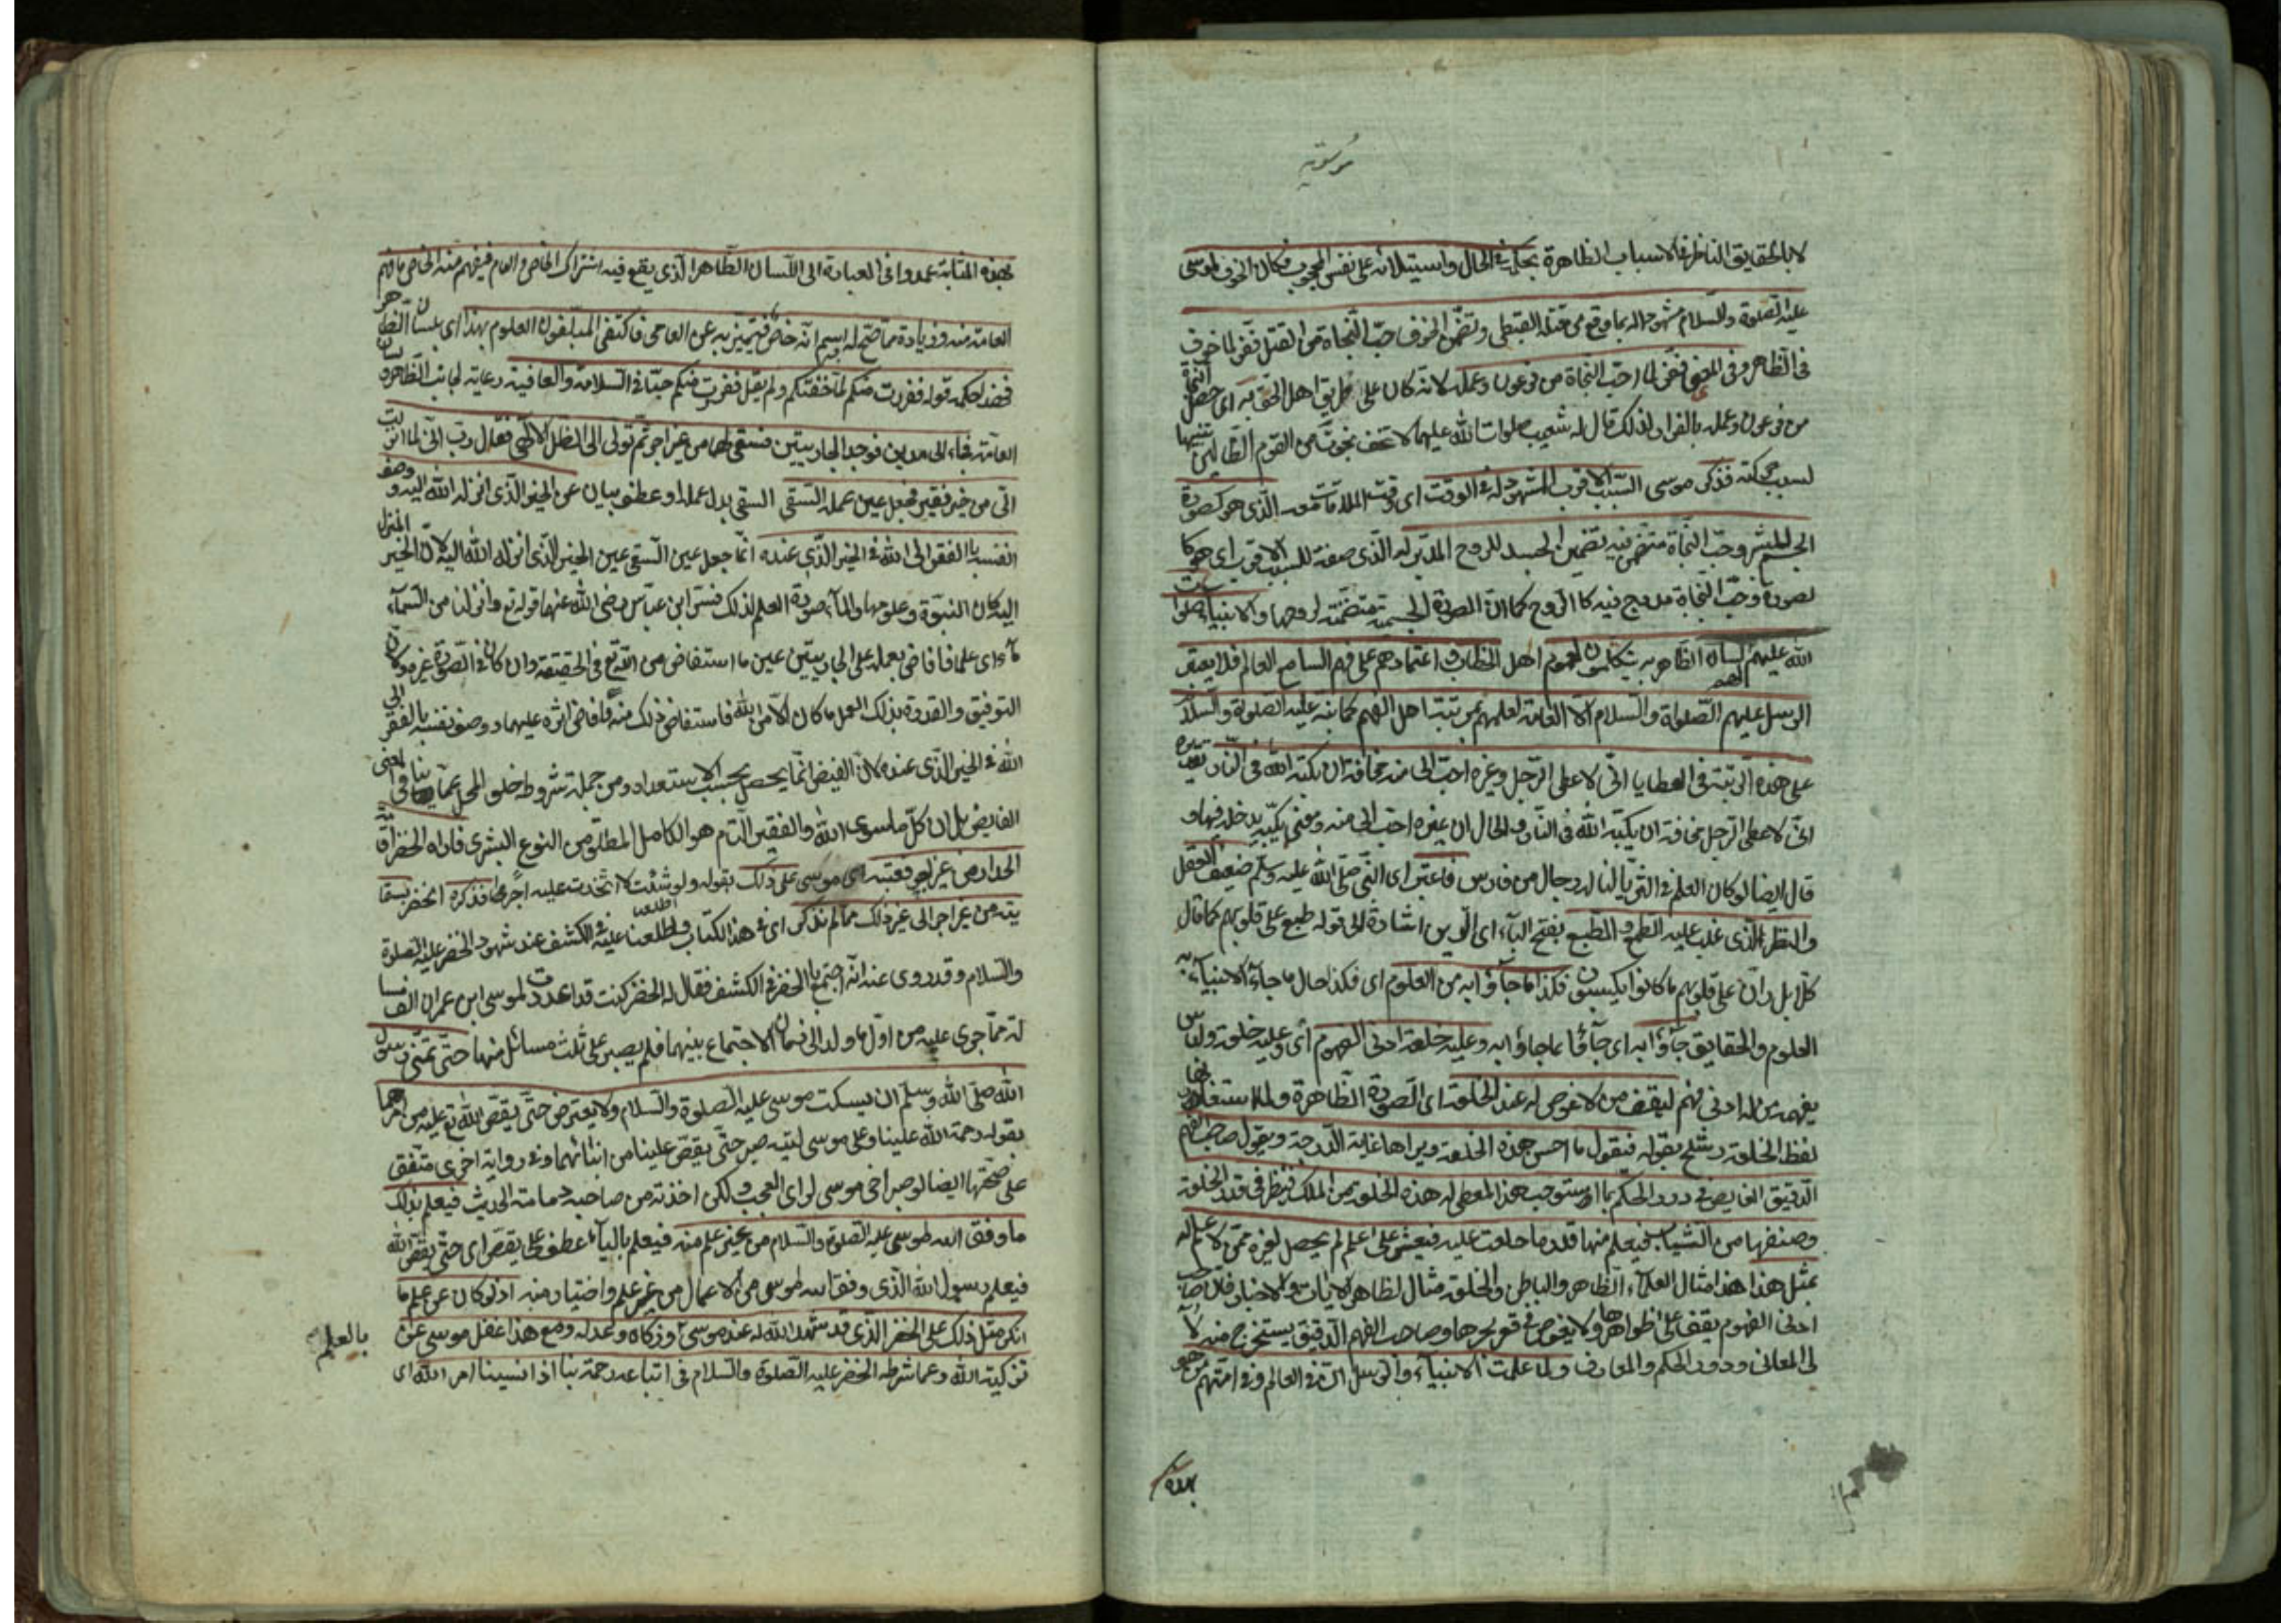 موسويه
لا بالحقايق الناظرة للاسباب الظاهرة بحكم الحال واستيلائه على نفس المحجوب فكان الخوف لموسى
عليه الصلوة والسلام مشهودا له بما وقع من قتله القبطى وتضمن الخوف حبّ النجاة من القتل ففرّ لما خاف
فى الظاهر وفى المعنى ففرّ لما احبّ النجاة من فرعون وعمله لانه كان على طريق اهل الحق به اى حصل النجاة
من فرعون وعمله بالفرار ولذلك قال له شعيب صلوات الله عليهما لا تخف نجوت من القوم الظالمين تنبيها
لسبب حركته فذكر موسى السبب الاقرب المشهود له فى الوقت اى وقت الملاقات معه الذى هو كصورة
الجسم للبشر وحبّ النجاة متضمن فيه تضمين الجسد للروح المدبّر له الذى صفة للسبب الاقرب اى هو كا
لصورة وحبّ النجاة مدمج فيه كالروح كما انّ الصورة الجسمية متضمنة لروحها والانبياء صلوات
الله عليهم لسان الظاهر به يتكلمون لعموم اهل الخطاب واعتمادهم على فهم السامع العالم فلا يعتبر
الرسل عليهم الصلوة والسلام الا العامة لعلمهم بمرتبة اهل الفهم كما نبّه عليه الصلوة والسلام
على هذه الرتبة فى العطايا انى لاعطى الرجل وغيره احبّ الىّ منه مخافة ان يكبّه الله فى النار تقديره
انى لاعطى الرجل مخافة ان يكبّه الله فى النار والحال ان غيره احبّ الىّ منه ومعنى يكبّه يدخله فيها و
قال ايضا لو كان العلم فى الثريا لنا له رجال من فارس فاعتبر اى النبى صلى الله عليه وسلم ضعيف العقل
والنظر الذى غلب عليه الطمع والطبع بفتح الباء اى الرين اشارة الى قوله طبع على قلوبهم كما قال
كلا بل ران على قلوبهم ما كانوا يكسبون فكذا ما جاؤا به من العلوم اى فكذا حال ما جاء الانبياء به
العلوم والحقايق جاؤا به اى جاؤا بما جاؤا به وعليه خلعة ادنى الفهوم اى وعليه خلعة ولباس
يفهمه من له ادنى فهم ليقف من لا غوص له عند الخلعة اى الصورة الظاهرة ولما استعار لها
لفظ الخلعة رشح بقوله فيقول ما احسن هذه الخلعة ويراها غاية الدرجة ويقول صاحب الفهم
الدقيق الغايص فى درر الحكم بما استوجب هذا المعطى له هذه الخلعة من الملك فينظر فى قدر الخلعة
وصنفها من الثياب فيعلم منها قدر ما خلعت عليه فيعثر على علم لم يحصل لغيره ممن لا علم له
بمثل هذا هذا مثال العلماء الظاهر والباطن والخلعة مثال لظاهر الايات والاخبار فان صاحب
ادنى الفهوم يقف على ظواهرها ولا يغوص فى قعر بحرها وصاحب الفهم الدقيق يستخرج منه لآ
لى المعانى ودرر الحكم والمعارف ولما علمت الانبياء والرسل ان فى العالم وفى امتهم من هو
بهذه
بهذه المثابة عمدوا فى العبارة الى اللسان الظاهر الذى يقع فيه اشتراك الخاص والعام فيفهم منه الخاص ما فهم
العامة منه وزيادة مما صحّ له به اسم انه خاص فيتميز به عن العامى فاكتفى المبلغون العلوم بهذا اى بلسان الظاهر
فهذا حكمة قوله ففررت منكم لما خفتكم ولم يقل ففررت منكم حبّا فى السلامة والعافية رعاية لجانب الظاهر ولسان
العامة فجاء الى مدين فوجد الجاريتين فسقى لهما من غير اجر ثم تولى الى الظل الالهى فقال رب انى لما انزلت
الى من خير فقير فجعل عين عمله السقى السقى بدل عمله او عطف بيان عن الخير الذى انزله الله اليه ووصف
نفسه بالفقر الى الله فى الخير الذى عنده انما جعل عين السقى عين الخير الذى انزله الله اليه لان الخير المنزل
اليه كان النبوة وعلومها والماء صورة العلم لذلك فسّر ابن عباس رضى الله عنهما قوله تع وانزلنا من السماء
ماء اى علما فافاض بعمله على الجاريتين عين ما استفاض من الله تع فى الحقيقة وان كان فى الصورة غيره وكان
التوفيق والقدرة بذلك العمل ما كان الا من الله فاستفاض ذلك منه فافاض اثره عليهما ووصف نفسه بالفقر الى
الله فى الخير الذى عنده لان الفيض انما يحصل بحسب الاستعداد ومن جملة شروطه خلو المحل عما ينافى لمعنى
الفايض بل ان كل ما سوى الله والفقير التام هو الكامل المطلق من النوع البشرى فاراه الخضر اقامة
الجدار من غير اجر فعتبه اى موسى على ذلك بقوله ولو شئت لاتخذت عليه اجرا فذكره الخضر بسقا
يته من غير اجر الى غير ذلك مما لم نذكر اى فى هذا الكتاب واطلعنا عليه فى الكشف عند شهود الخضر عليه الصلوة
والسلام وقد روى عنه انه اجتمع بالخضر فى الكشف فقال له الخضر كنت قد اعددت لموسى ابن عمران الف مسا
لة مما جرى عليه من اول ما ولد الى زمان الاجتماع بينهما فلم يصبر على ثلث مسائل منها حتى تمنّى رسول
الله صلى الله وسلم ان يسكت موسى عليه الصلوة والسلام ولا يعترض حتى يقصّ الله تع عليه من امرهما
بقوله رحمة الله علينا وعلى موسى ليته صبر حتى يقصّ علينا من انبائهما وفى رواية اخرى متفق
على صحتها ايضا لو صبر اخى موسى لراى العجب ولكن اخذته من صاحبه ذمامة الحديث فيعلم بذلك
ما وفق اليه موسى عليه الصلوة والسلام من غير علم منه فيعلم بالياء عطف على يقصّ اى حتى يقصّ الله
فيعلم رسول الله الذى وفق اليه موسى من الاعمال من غير علم واختيار منه اذ لو كان عن علم ما
انكر مثل ذلك على الخضر الذى قد شهد الله له عند موسى وزكاه وعدله ومع هذا غفل موسى عن
بالعلم
تزكية الله وعما شرطه الخضر عليه الصلوة والسلام فى اتباعه رحمة بنا اذا نسينا امر الله اى